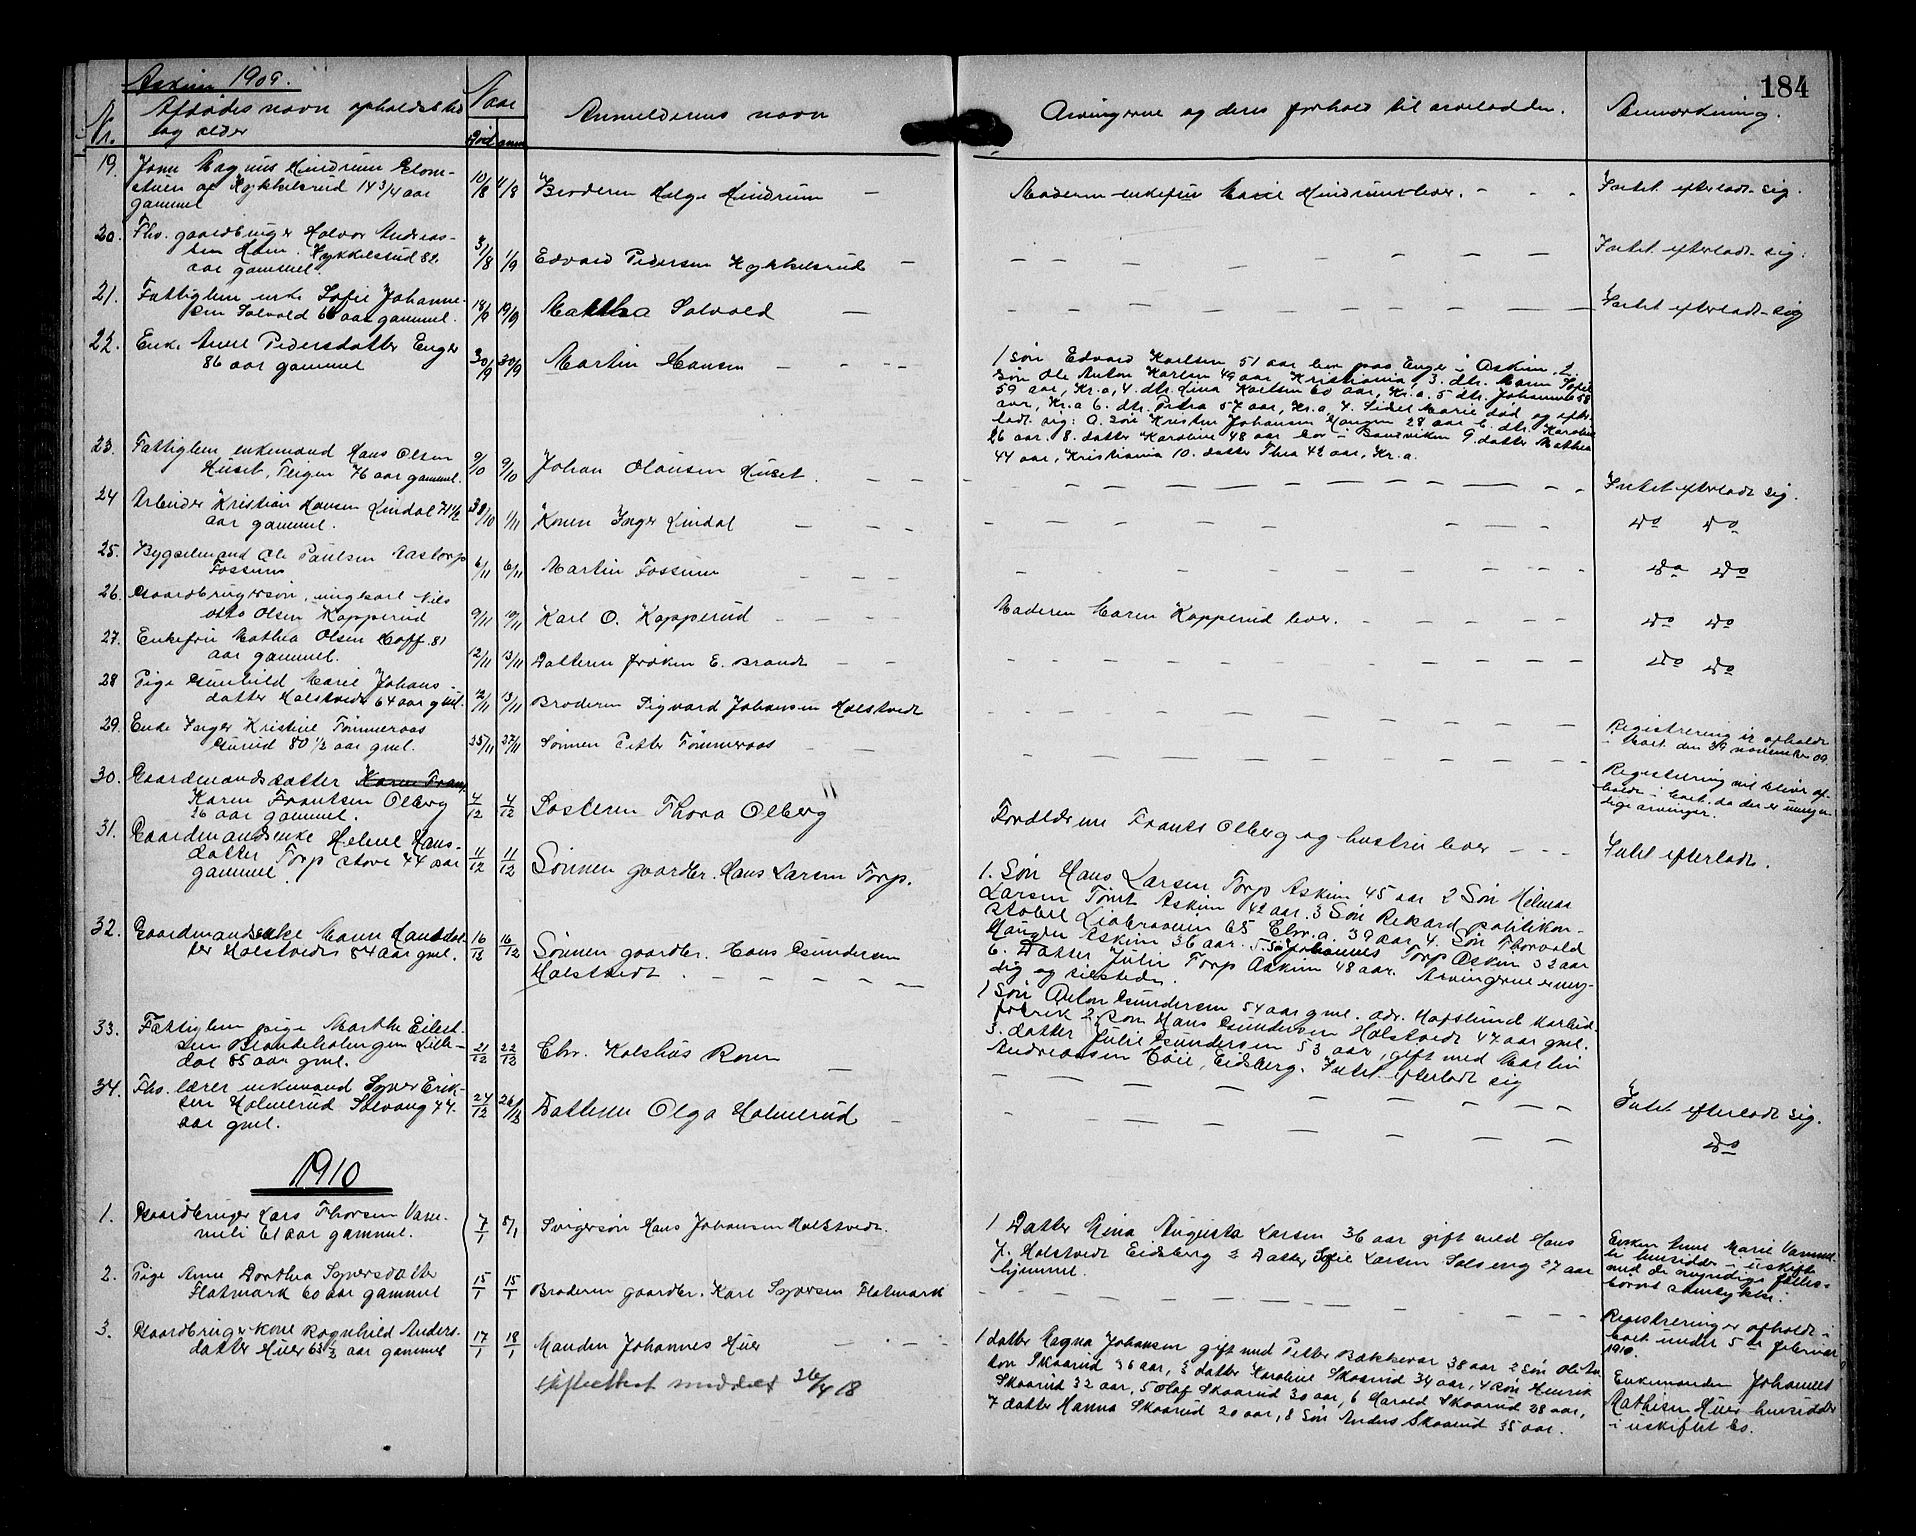 184
Askim 1909.
Nr.
Afdødes navn opholdssted
og alder
Naar
død anm
Anmelderens navn
Arvingerne og deres forhold til arveladeren.
Anmærkning.
19. Magnus Mindrum Glom-
stuen af Kykkelsrud 14 3/4 aar
gammel
10/8 11/8 Broderen Helge Mindrum —
Moderen enkefru Marie Mindrum lever. - - -
Intet efterladt sig.
20. Fhv. gaardbruger Halvor Andreas-
sen Kykkelsrud 82
aar gammel.
31/8 1/9 Edvard Pedersen Kykkelsrud —
Intet efterladt sig.
21. Fattiglem enke Sofie Johanne-
sen Solvold 66 aar gammel.
18/9 19/9 Mathea Solvold —
Intet efterladt sig
22. Enke Anne Pedersdatter Enger
86 aar gammel
30/9 30/9 Martin Hansen - - -
1 søn Edvard Karlsen 51 aar bor paa Enger i Askim, 2.
Søn Ole Anton Karlsen 49 aar Kristiania, 3. dtr. Maren Sofie
59 aar, Kr.a, 4. dtr. Lina Karlsen 60 aar, Kr.a. 5 dtr. Johanne 58
aar, Kr.a 6. dtr. Petra 57 aar, Kr.a, 7. Sidsel Marie død og efter-
ladt sig: a. Søn Kristen Johansen Haugen 28 aar b. dtr. Karoline
26 aar. 8. datter Karoline 48 aar bor i 9. datter Mathea
44 aar, Kristiania 10. datter Thea 42 aar, Kr.a.
23. Fattiglem enkemand Hans Olsen
Huset, 76 aar gammel.
9/10 9/10 Johan Olausen Huset.
Intet efterladt sig.
24 Arbeider Kristian Hansen Lindal 71 1/2
aar gammel.
30/10 1/11 Konen Inger Lindal
Do Do
25. Bygselmand Ole Paulsen Aastorp
Fossum
6/11 6/11 Martin Fossum
Do Do
26. Gaardbrugersøn, ungkarl Nils
Otto Olsen Kopperud
9/11 10/11 Karl O. Kopperud
Moderen Maren Kopperud lever.
Do Do
27. Enkefru Mathea Olsen Hoff 81
aar gammel.
12/11 13/11 Datteren frøken E. Brandt
Do Do
28 Pige Gunhild Marie Johans-
datter Holstvedt 64 aar gml.
12/11 13/11 Broderen Sigvard Johansen Holstvedt
29. Enke Inger Kristine Tømmeraas
Gurud 80 1/2 aar gml.
25/11 27/11 Sønnen Petter Tømmeraas
Registrering er afholdt
i boet den 29 november 09.
30. Gaardmandsdatter Karen Fran
Karen Frantsen Olberg
26 aar gammel.
4/12 4/12 Søsteren Thora Olberg
Forældrene Frants Olberg og hustru lever - - -
Registrering vil blive af-
holdt i boet, da der er umyn-
dige arvinger.
31. Gaardmandsenke Helene Hans-
datter Torp store 77 aar
gammel.
11/12 11/12 Sønnen gaardbr. Hans Larsen Torp.
Intet efterladt.
1. Søn Hans Larsen Torp Askim 45 aar 2 Søn Helmer
Larsen Tomt Askim 42 aar. 3 Søn Rikard politikon-
stabel 65 Chr.a. 39 aar, 4. Søn Thorvald
Haugen Askim 36 aar. 5 Søn Johannes Torp Askim 32 aar
6. Datter Julie Torp Askim 48 aar. Arvingerne er myn-
dig og tilstede.
32. Gaardmandsenke Maren Hansdat-
ter Holstvedt 84 aar gml.
16/12 16/12 Sønnen gaardbr. Hans Gundersen
Holstvedt
1 Søn Anton Gundersen 54 aar gml. adr. Hafslund Karbid-
fabrik 2. søn Hans Gundersen Holstvedt 47 aar gml.
3. datter Julie Gundersen 53 aar, gift med Martin
Andreassen Eidsberg. Intet efterladt sig
33. Fattiglem pige Marthe Eilert-
sen Lille-
dal 85 aar gml.
21/12 22/12 Chr. Kolshus Roen
Intet efterladt sig.
34. Fhv. lærer enkemand Syver Erik-
sen Holmerud Solvang 77.
aar gml.
24/12 26/12 Datteren Olga Holmerud
Do
1910
1. Gaardbruger Lars Thorsen Vam-
meli 61 aar gammel.
7/1 8/1 Svigersøn Hans Johansen Holstvedt.
1 Datter Mina Augusta Larsen 36 aar gift med Hans
J. Holstvedt Eidsberg 2 Datter Sofie Larsen Solseng 27 aar
hjemmel.
Enken Anne Marie Vammel-
li hensidder i uskifte
med de myndige fælles-
børns samtykke.
2. Pige Anne Dorthea Syversdatter
Flatmark 60 aar gammel
15/1 15/1 Broderen gaardbr. Karl Syversen Flatmark
Registrering er afholdt i
boet under 5te februar
1910.
3. Gaardbrugerkone Ragnhild Anders-
datter Huer 63 1/2 aar gammel
17/1 18/1 Manden Johannes Huer
1 datter Magna Johansen gift med Petter Bakkevar 38 aar 2 Søn Ole An-
ton Skaarud 36 aar, 3 datter Karoline Skaarud 34 aar, 4 Søn Henrik
Skaarud 32 aar, 5 Olaf Skaarud 30 aar, 6 Harald Skaarud 28 aar,
7 datter Hanna Skaarud 20 aar, 8 Søn Anders Skaarud 35 aar.
Enkemanden Johannes
Mathisen Huer hensidder
i uskiftet bo.
Skifteattest meddelt 26/4 18